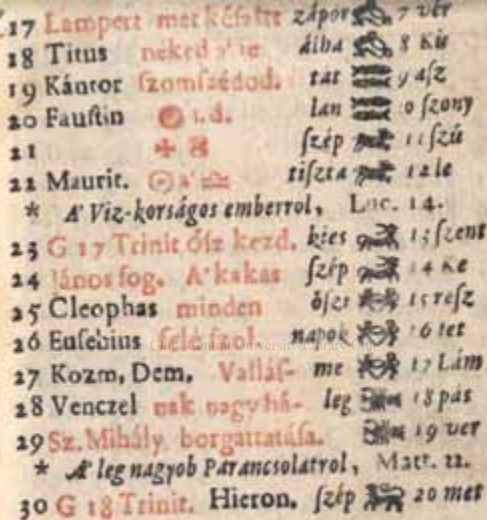 17 Lampert met késértt zápor 7 vér
18 Titus neked a' te álha 8 Kis
19 Kántor ſzomſzédod. tat 9 aſz
20 Fauſtin 1.d. lan 0 ſzony
21 ſzép 11 ſzú
22 Maurit. ☉ a' ♎ tiſzta 12 le
* A' Viz-korságos emberrol, Luc. 14.
23 G 17 Trinit ôſz kezd. kies 13 ſzent
24 János fog. A' kakas ſzép 14 Ke
25 Cleophas minden ôſzi 15 reſz
26 Euſebius felé ſzol. napok 16 tet
27 Kozm, Dem. Vallás- me 17 Lám
28 Venczel nak nagy há- leg 18 pás
29 Sz. Mihály borgattatáſa. 19 ver
* A' leg nagyob Parancsolatrol, Matt. 22.
30 G 18 Trinit. Hieron. ſzép 20 met